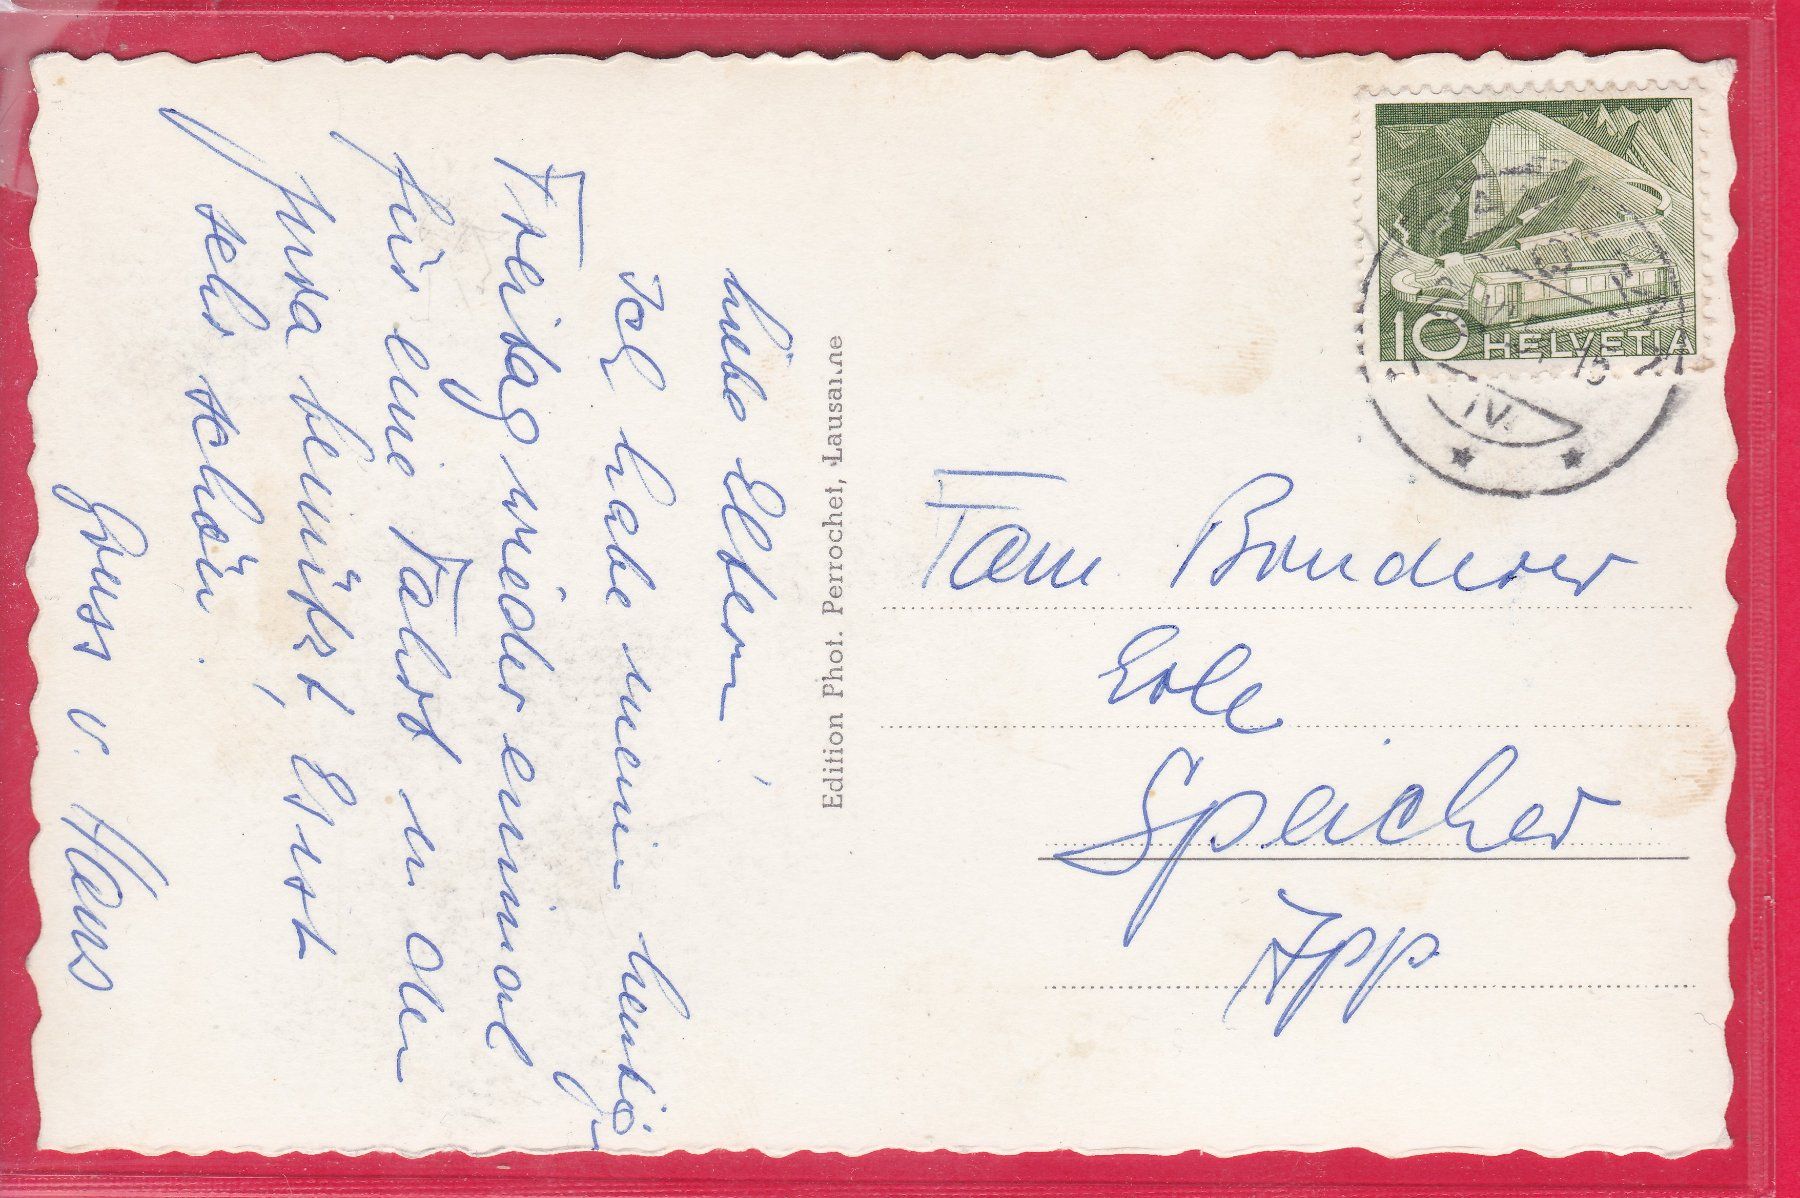 Liebe Eltern,
Ich habe meinen heutig
Freitag wieder einmal
für eine Fahrt in den
Jura benützt, Es ist
sehr schön.
Gruss v. Hans
Edition Phot. Perrochet, Lausanne
10 HELVETIA
IV.
Fam. Bruderer
Erle
Speicher
App